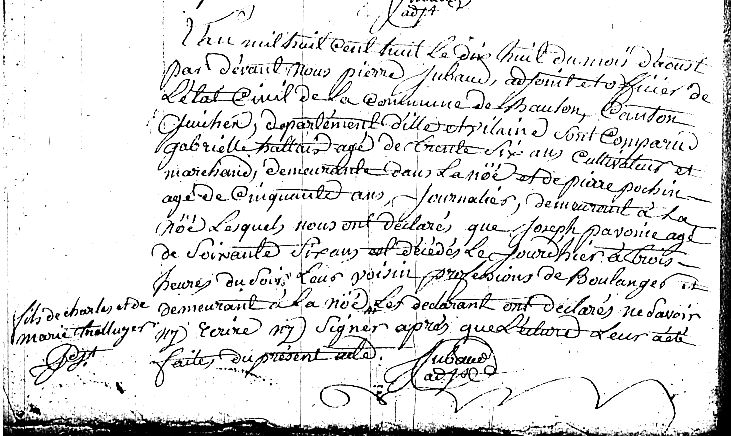 adjt
L'an mil huit cent huit le dix huit du mois daoust
par dévant nous pierre Jubaud, adjoint et officier de
L'état Civil de La Commune de Bauton, Canton
Guichen, département dille et vilaine sont Comparu
gabrielle hallais agé de trente Six ans Cultivateur et
marchand, demeurante dans La nöë et de pierre pochin
agé de Cinquante ans, Journaliés, demeurant à La
nöë Lesquels nous ont déclarés que Joseph pavoine agé
de Soixante Six ans est décédés Le Jourdhier à trois
heures du Soir, Leur voisin professions de Boulanger et
demeurant à La nöë. Les déclarant ont déclarés ne Savoir
ny Ecriré ny Signér aprés que Lecture a Leur a été
faites du présent acte.
Jubaud
adjt
fils de charles et de
marie thelluyer